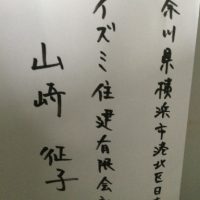 奈川県横浜市港北区日吉
イズミ住建有限会社
山崎 征子